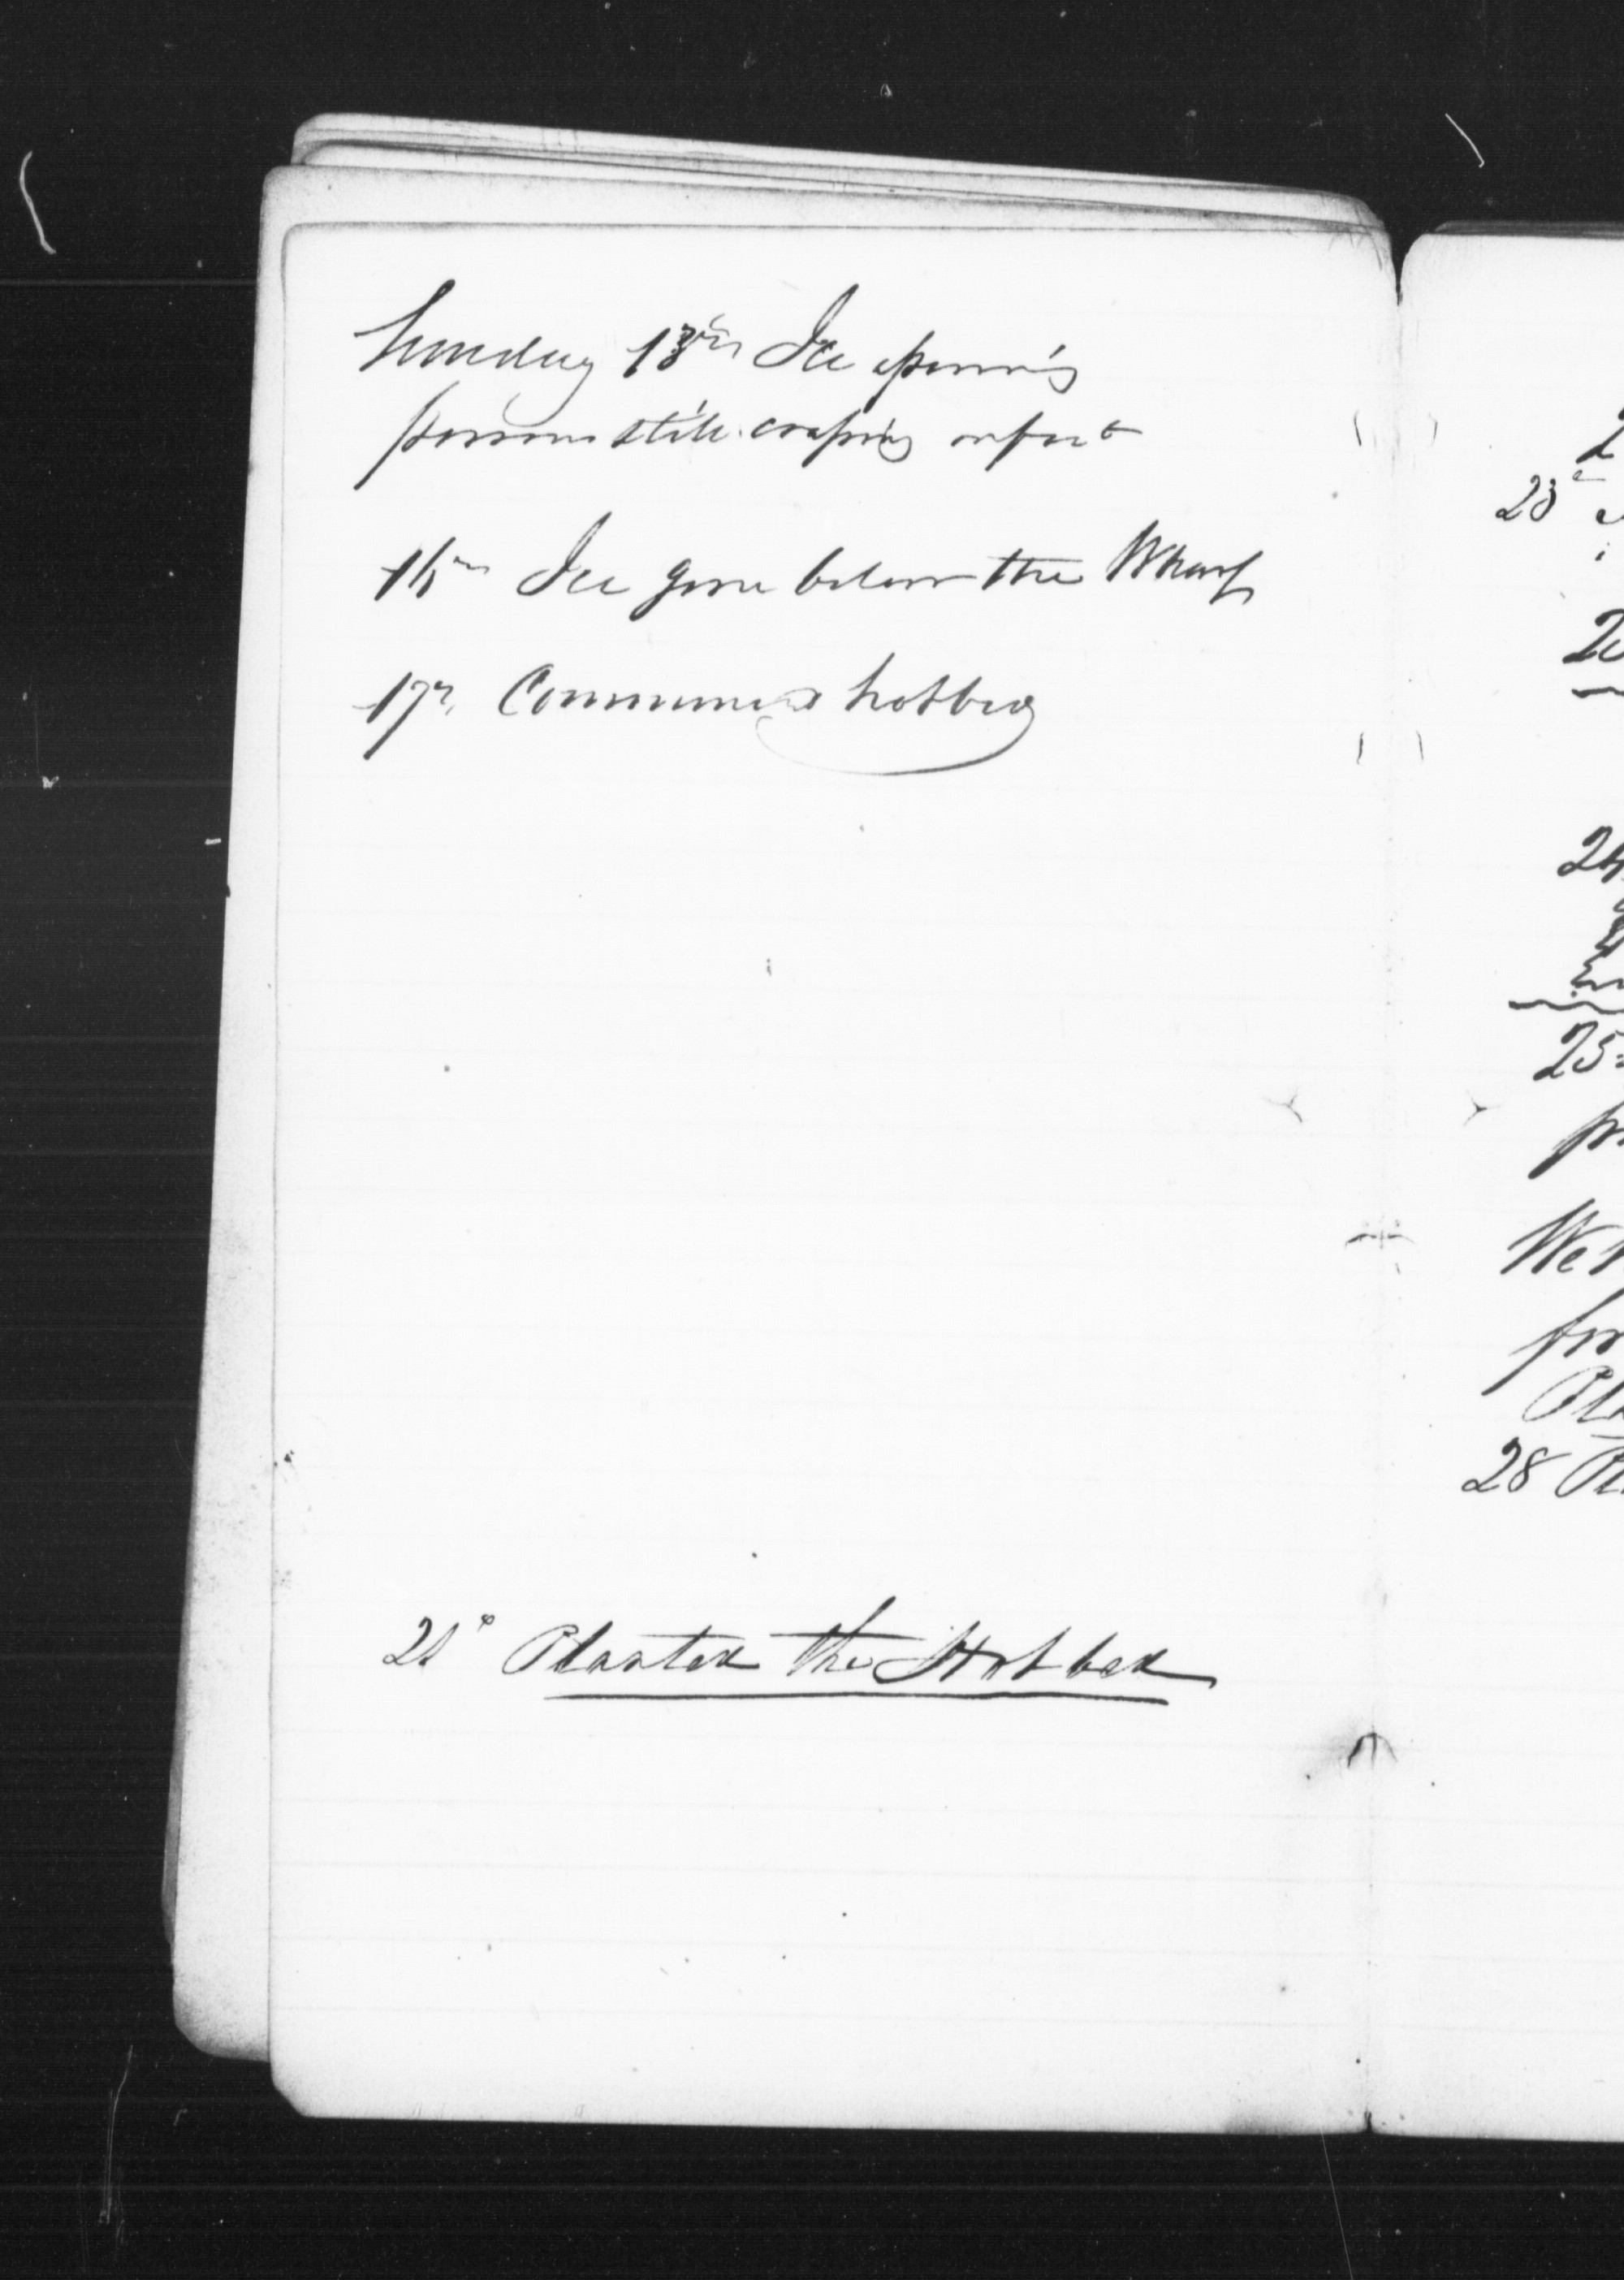 Sunday 13th Ice opening
persons still crossing on foot
16th Ice gone below the Wharf
17th Commenced hotbed
21st Planted the Hot bed
23d
20
24
25
We
28